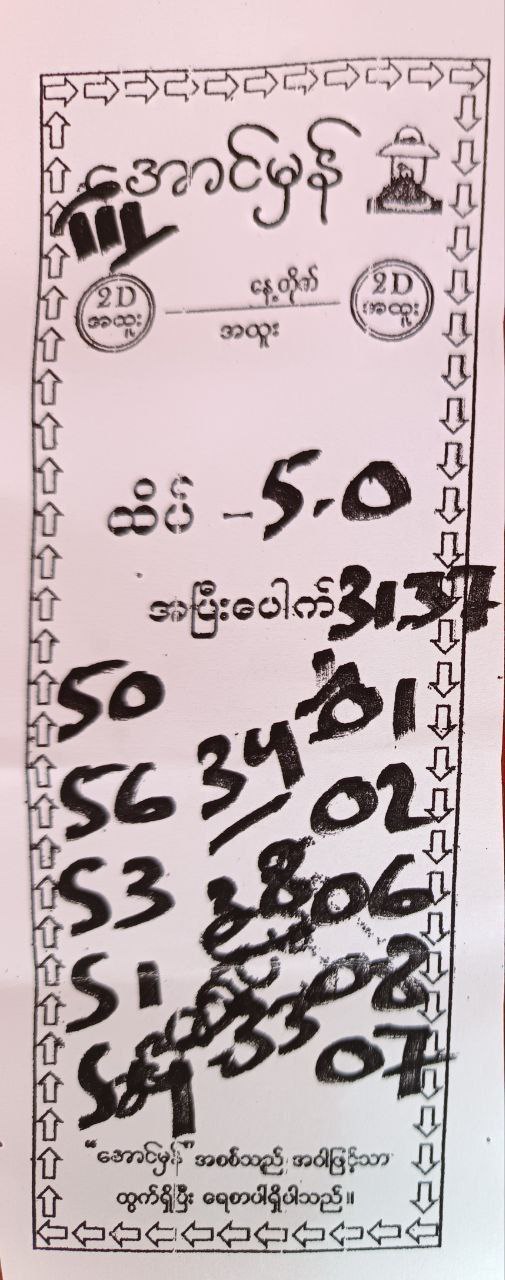 အောင်မှန်
2D အထူး
နေ့တိုက်
အထူး
2D အထူး
ထိပ် - 5.0
အပြီးပေါက် 3137
50 01
34
56 02
53 06
51 08
33 07
"အောင်မှန်" အစစ်သည် အဝါဖြင့်သာ
ထွက်ရှိပြီး ရေစာပါရှိပါသည်။